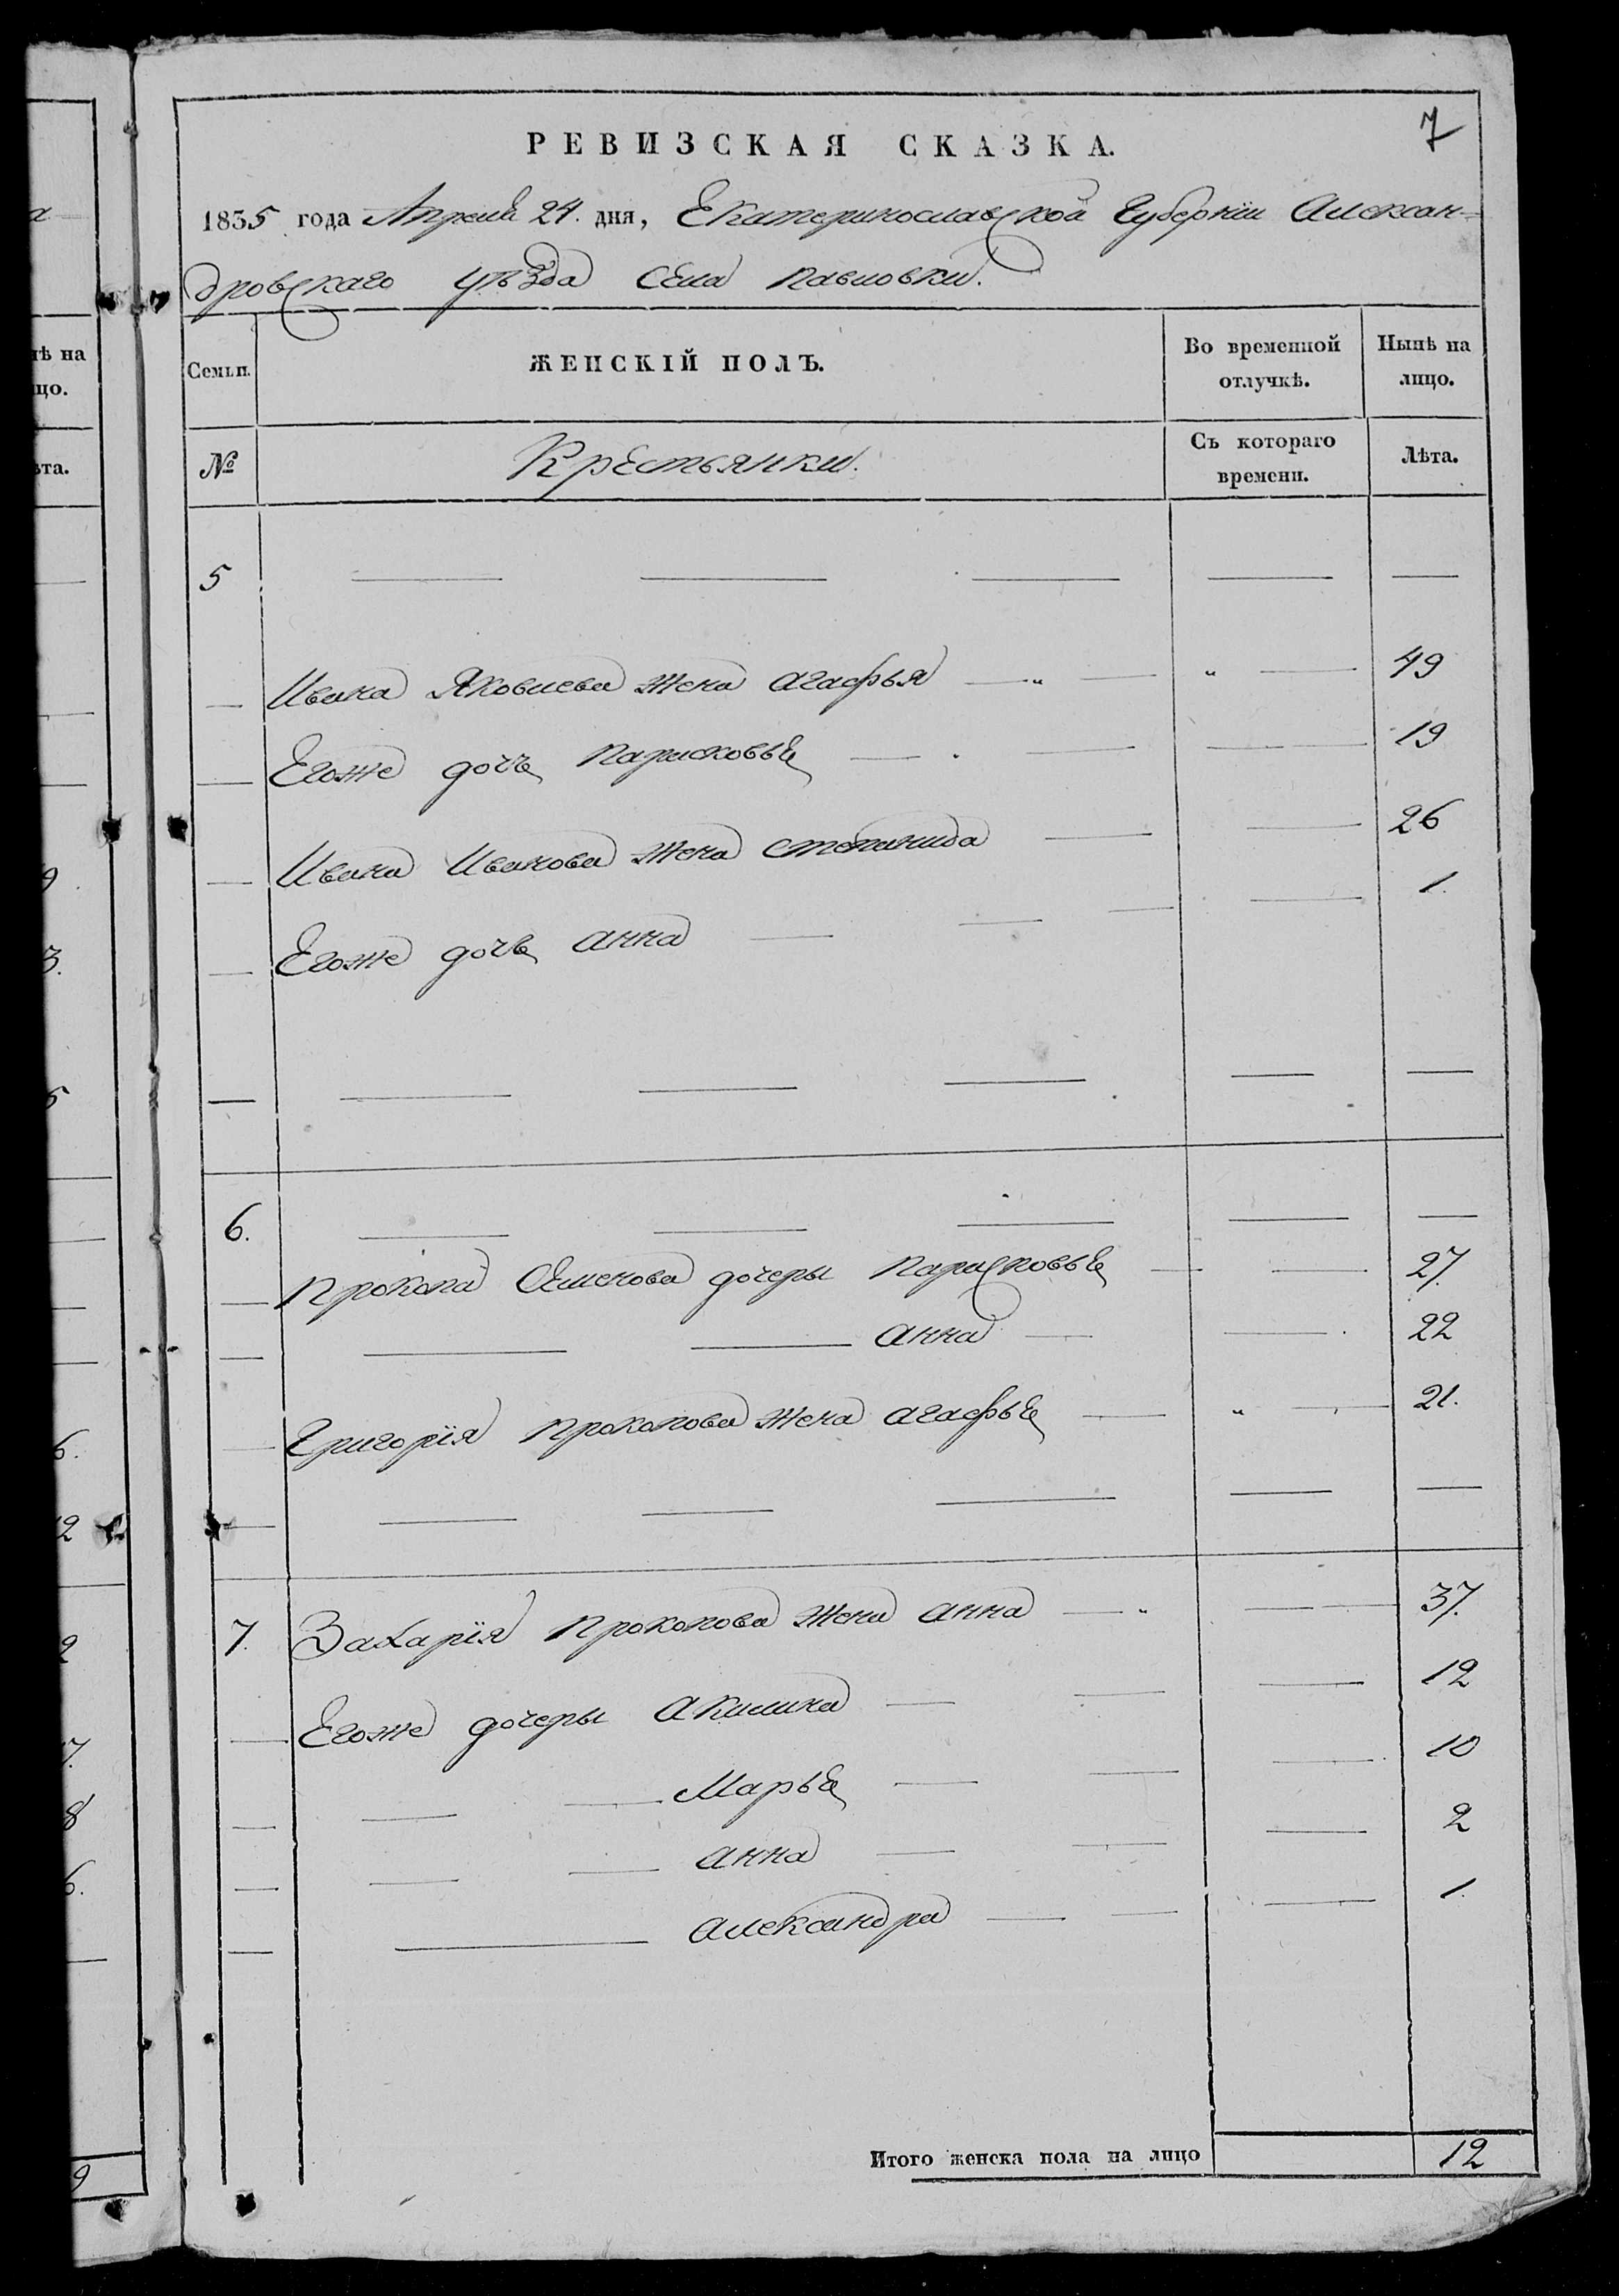 7
РЕВИЗСКАЯ СКАЗКА.
1835 года Апреля 24. дня, Екатеринославской Губернїи Алексан-
дровскаго уѣзда Села Павловки.
Семьи.
ЖЕНСКІЙ ПОЛЪ.
Во временной
отлучкѣ.
Нынѣ на
лицо.
№
Крестьянки.
Съ котораго
времени.
Лѣта.
5
Ивана Яковлева жена Агафья 49
Егоже дочь Парасковья 19
Ивана Иванова жена Степанида 26
Егоже дочь Анна 1.
6.
Прокопа Семенова дочеры Парасковья 27.
Анна 22
Григорїя Прокопова жена Агафья 21.
7. Захарїя Прокопова жена Анна 37.
Егоже дочеры Акилина 12
Марья 10
Анна 2
Александра 1.
Итого женска пола на лицо 12